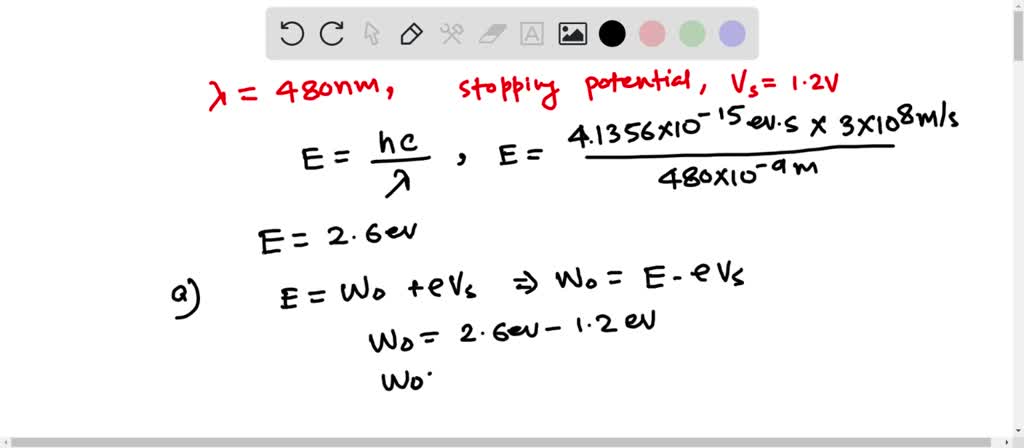 A
λ = 480nm, stopping potential, Vs = 1.2V
E = hc/λ , E = 4.1356×10⁻¹⁵ ev.s × 3×10⁸ m/s / 480×10⁻⁹ m
E = 2.6 ev
a) E = W₀ + eVs ⇒ W₀ = E - eVs
W₀ = 2.6ev - 1.2 ev
W₀